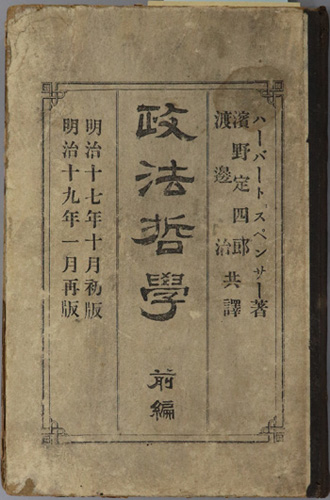 ハーバート、スペンサー著
濱野定四郎
渡邊治共譯
政法哲學
前編
明治十七年十月初版
明治十九年一月再版